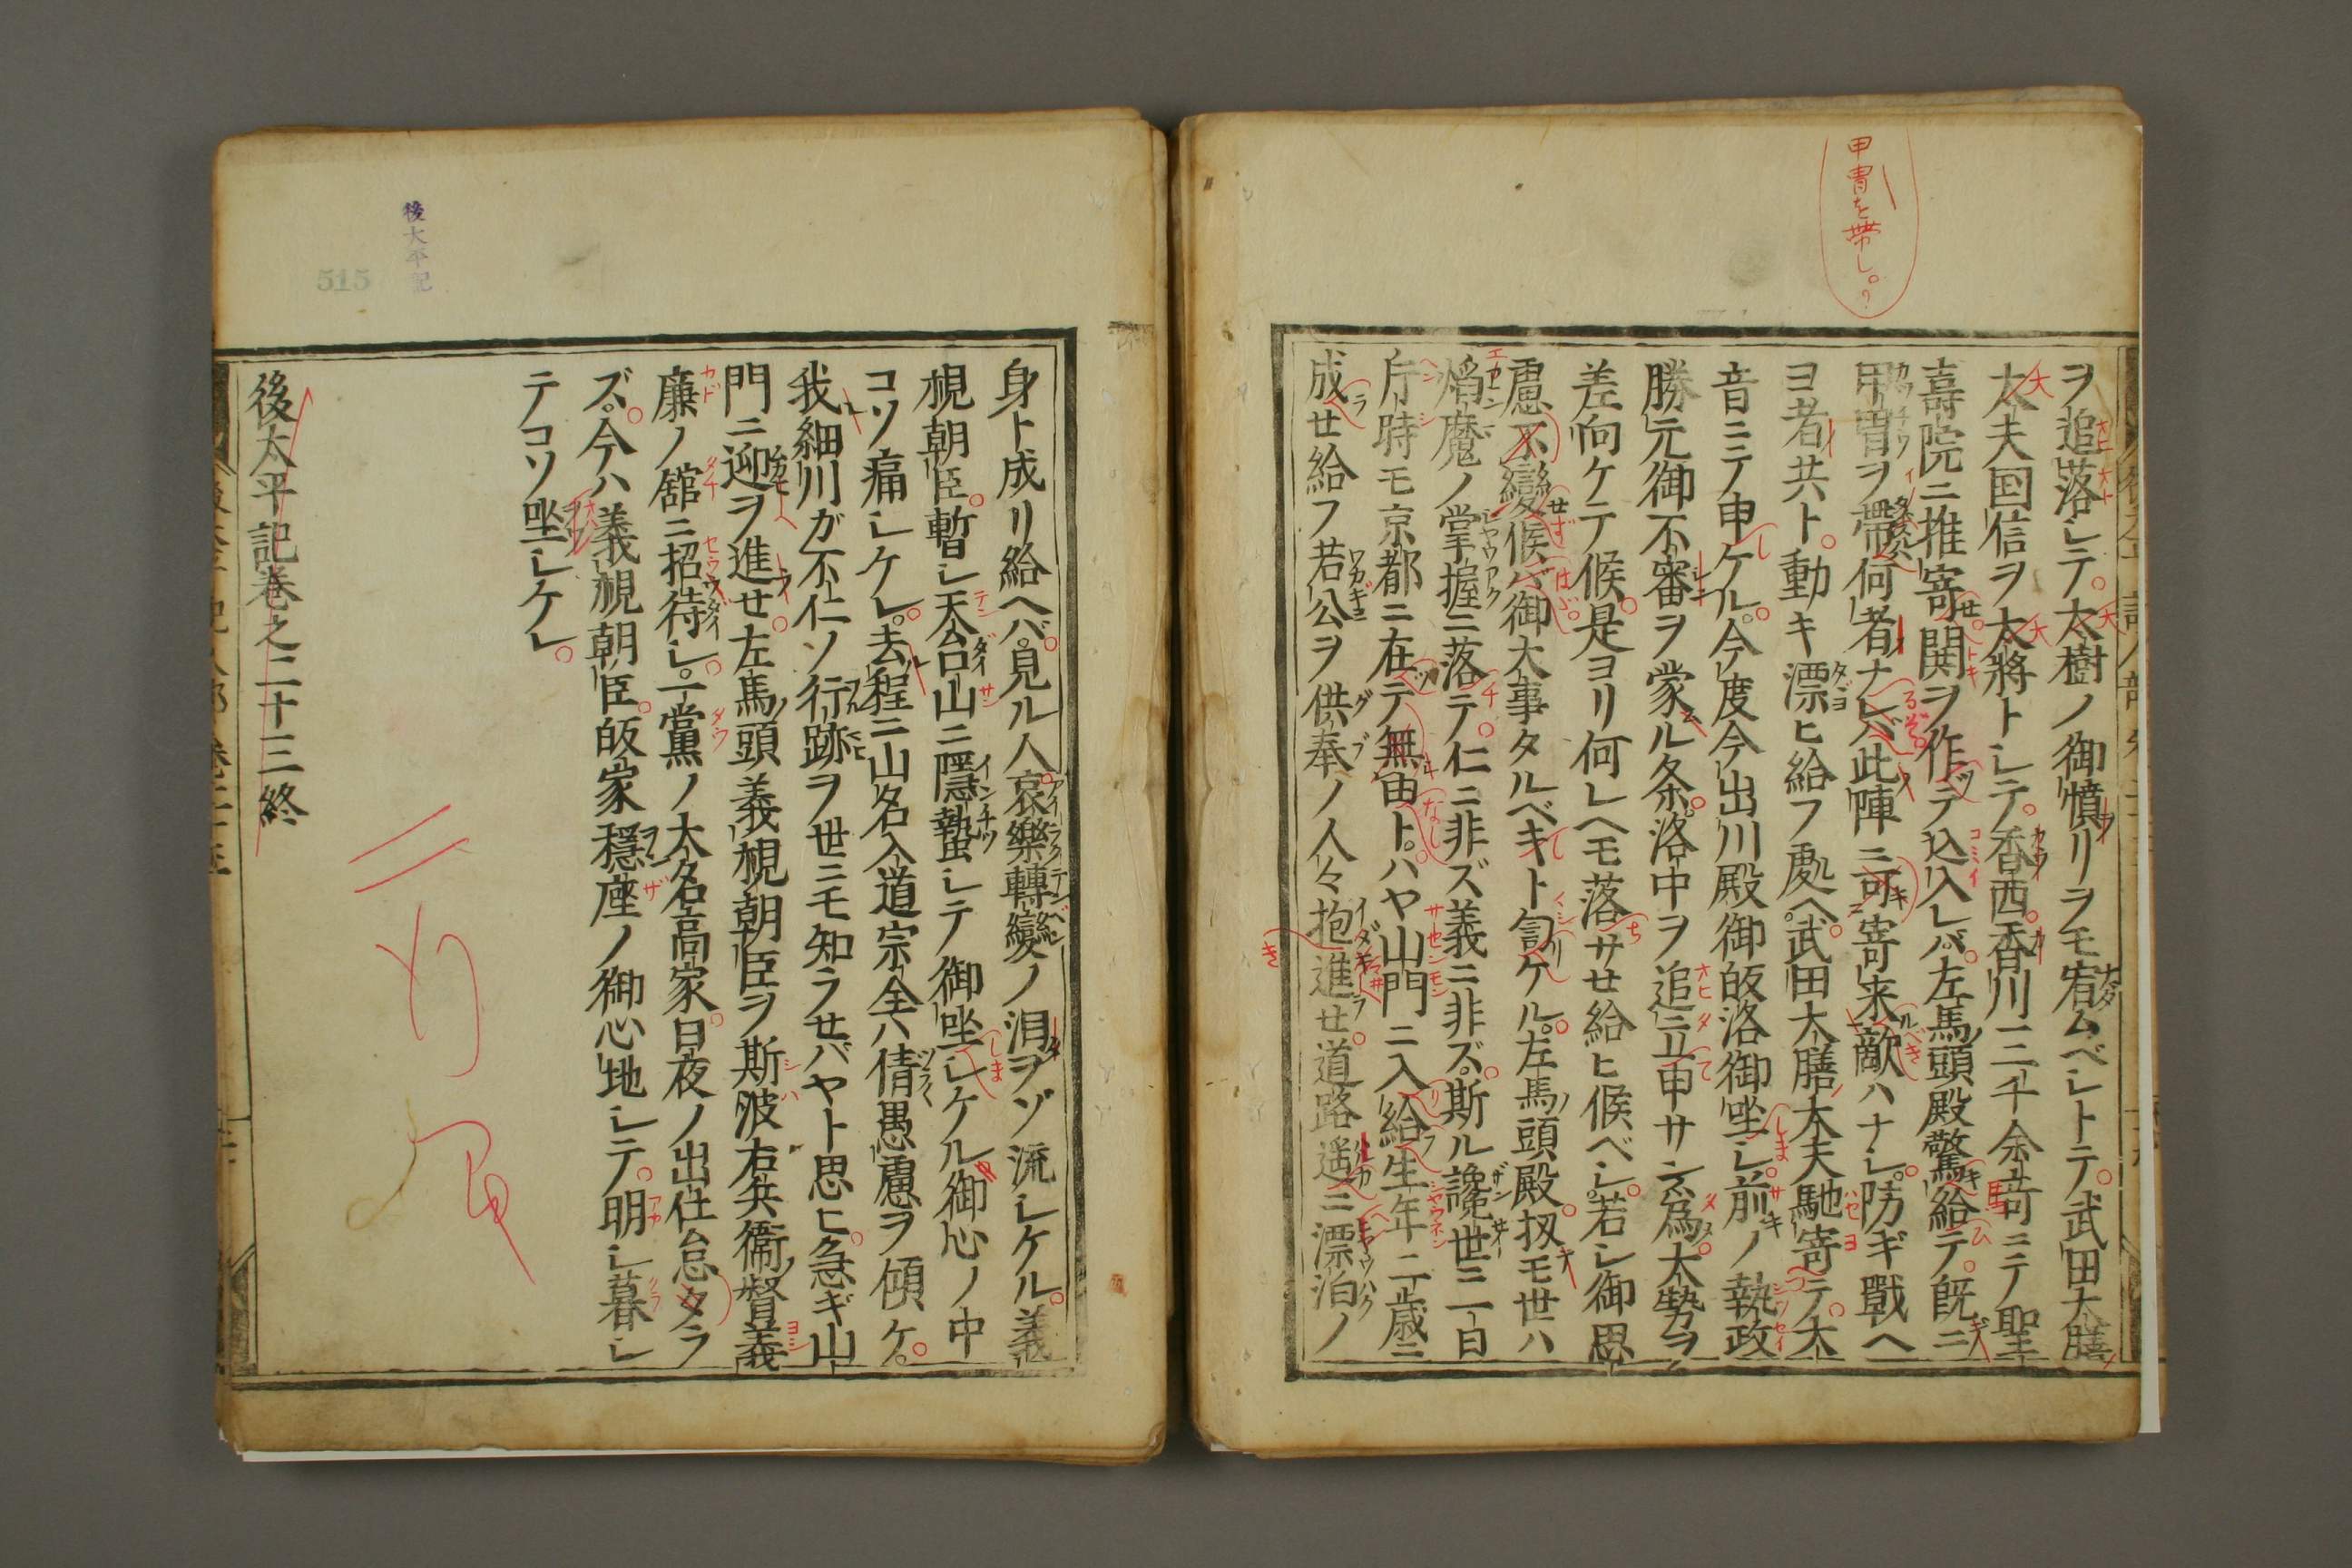 甲冑を帯し。?
ヲ追落シテ大樹ノ御憤リヲモ宥ムベシトテ武田大膳
大夫国信ヲ大將トシテ香西香川三千余奇ニテ聖
壽院ニ推寄関ヲ作テ込入レバ左馬頭殿驚給テ既ニ
甲冑ヲ帶何者ナレバ此陣ニ可寄来敵ハナシ防ギ戰ヘ
ヨ者共ト動キ漂ヒ給フ處ヘ武田大膳大夫馳寄テ大
音ニテ申ケル今度今出川殿御皈洛御坐シ前ノ執政
勝元御不審ヲ蒙ル条洛中ヲ追立申サン爲大勢ヲ
差向ケテ候是ヨリ何レヘモ落サせ給ヒ候ベシ若シ御思
慮不變候ハヾ御大事タルベキト訇ケル左馬頭殿扨モ世ハ
焰魔ノ掌握ニ落テ仁ニ非ズ義ニ非ズ斯ル讒世ニ一日
斤時モ京都ニ在テ無由トハヤ山門ニ入給生年二十歳ニ
成せ給フ若公ヲ供奉ノ人々抱進せ道路遥ニ漂泊ノ
身ト成リ給ヘバ見ル人哀樂轉變ノ泪ヲゾ流シケル義
視朝臣暫シ天台山ニ隱蟄シテ御坐シケル御心ノ中
コソ痛シケレ去程ニ山名入道宗全ハ倩愚慮ヲ傾ケ
我細川ガ不仁ソ行跡ヲ世ニモ知ラせバヤト思ヒ急ギ山
門ニ迎ヲ進せ左馬頭義視朝臣ヲ斯波右兵衞督義
廉ノ舘ニ招待シ一黨ノ大名高家日夜ノ出仕怠タラ
ズ今ハ義視朝臣皈家穩座ノ御心地シテ明シ暮シ
テコソ坐シケレ
後太平記巻之二十三終
後太平記
515